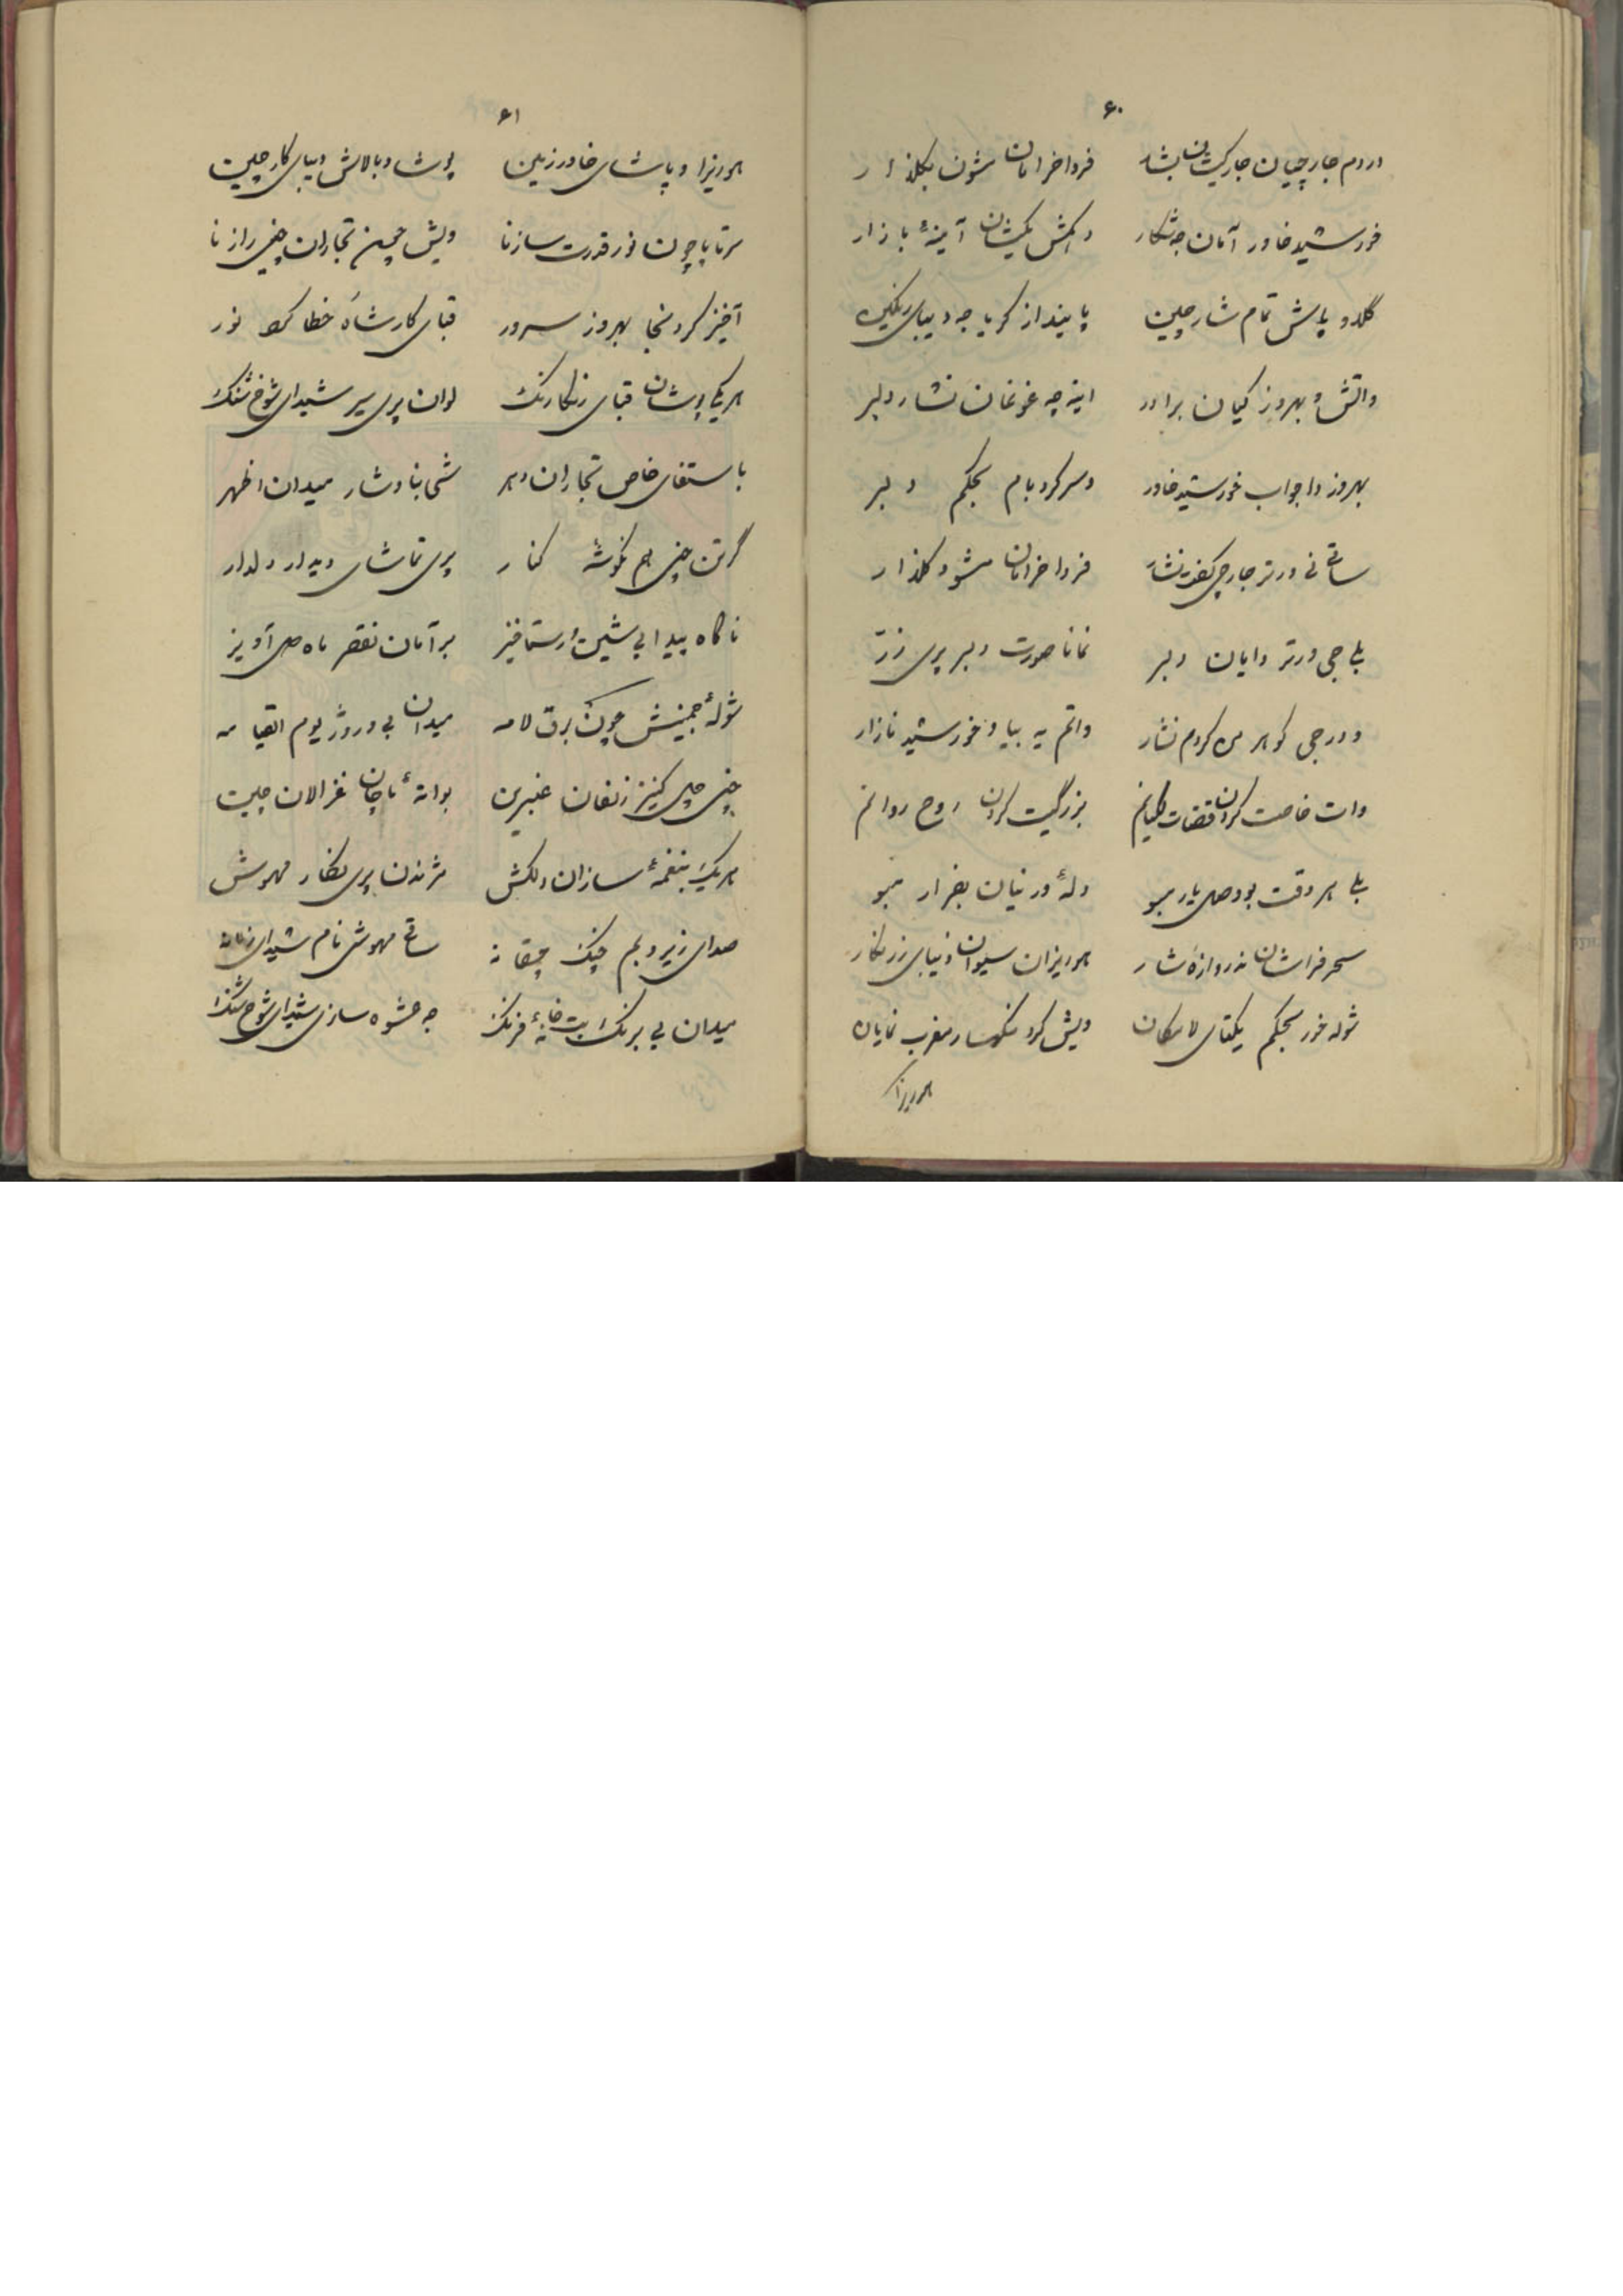 ۶۰
دردم جارچیان جار کیشان بشار فردا خرامان مشون بگلذار
خورشید خاور آمان جه شکار دکمش کیشان آینهٔ بازار
گلدو پاش تمام شار چین پاینداز کریا جه دیبای رنگین
واتش و بهروز کیان برادر اینه چه غوغان نه شار دلبر
بهروز دا جواب خورشید خاور دسر کرد بام بحکم دلبر
ساتی نی ورتر جارچی نه شار فردا خرامان مشو و گلذار
بلی جی ورتر دایان دلبر نمانا صورت دلبر پری زر
و درجی گوهر من کردم نثار واتم یه بیا و خورشید نازار
وات خاصت کردن بزرگیت کردن روح روانم
بلی هر وقت بو وصل یار مبو دلهٔ ور نیان بیقرار مبو
سحر فراشان نه دروازهٔ شار هوریزان سیوان دیبای زرنگار
شوله خور بحکم یکتای لامکان ویش کرد نکهسار مغرب نمایان
هوریزا
۶۱
هوریزا و پا شای خاور زمین پوشا و بالاش دیبای کار چین
سرتا پا چون نور قدرت سازنا ویش چمین تجاران چنی رازنا
آخیز کرد بهروز سرور قبای کار شاه خطا کرد نور
هر یک پوشان قبای رنگارنگ لوان پری سیر شیدای شوخ شنگ
با ستقای خاص تجاران دهر شی بنا و شار میدان اظهر
گرتن چنی هم نگوشهٔ کنار پری تماشای دیدار دلدار
ناگاه پیدا بی شین و رستاخیز بر آمان نقصر ماه دل آویز
شولهٔ جمینش چون برق لامه میدان بی و روژ یوم القیامه
چنی چل کنیز زلفان عنبرین بوانهٔ ناچان غزالان چین
هر یک بنغمهٔ سازان دلکش مژندن پری نگار مهوش
صدای زیر و بم چنگ چمقانه ساتی مهوش نام شیدای زمانه
میدان بی برنگ بت خانهٔ فرنگ جه عشوه سازی شیدای شوخ شنگ